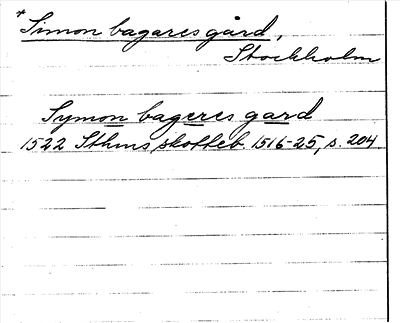 * Simon bagares gård,
Stockholm
Symon bageres gard
1522 Sthms skotteb. 1516-25, s. 204